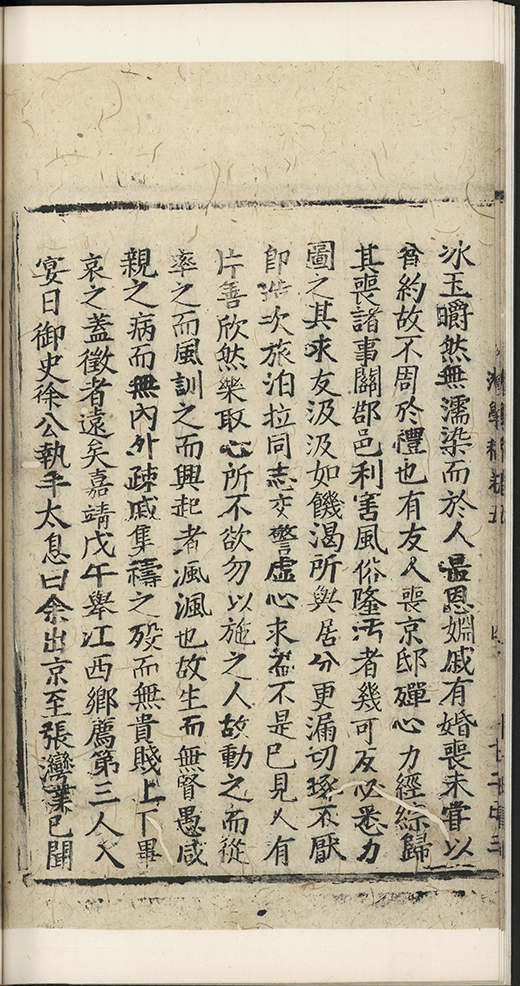 冰玉皭然無濡染而於人最恩婣戚有婚喪未嘗以
約故不周於禮也有友人喪京邸殫心力經綜歸
其喪諸事關郡邑利害風俗隆汚者幾可反必悉力
圖之其求友汲汲如饑渴所與居分更漏切琢不厭
即造次旅泊拉同志交警虛心求益不是已見人有
片善欣然樂取心所不欲勿以施之人故動之而從
率之而風訓之而興起者渢渢也故生而無賢愚咸
親之病而無內外疎戚集禱之殁而無貴賤上下畢
哀之蓋徵者遠矣嘉靖戊午舉江西鄉薦第三人入
宴日御史徐公執手太息曰余出京至張灣業已聞